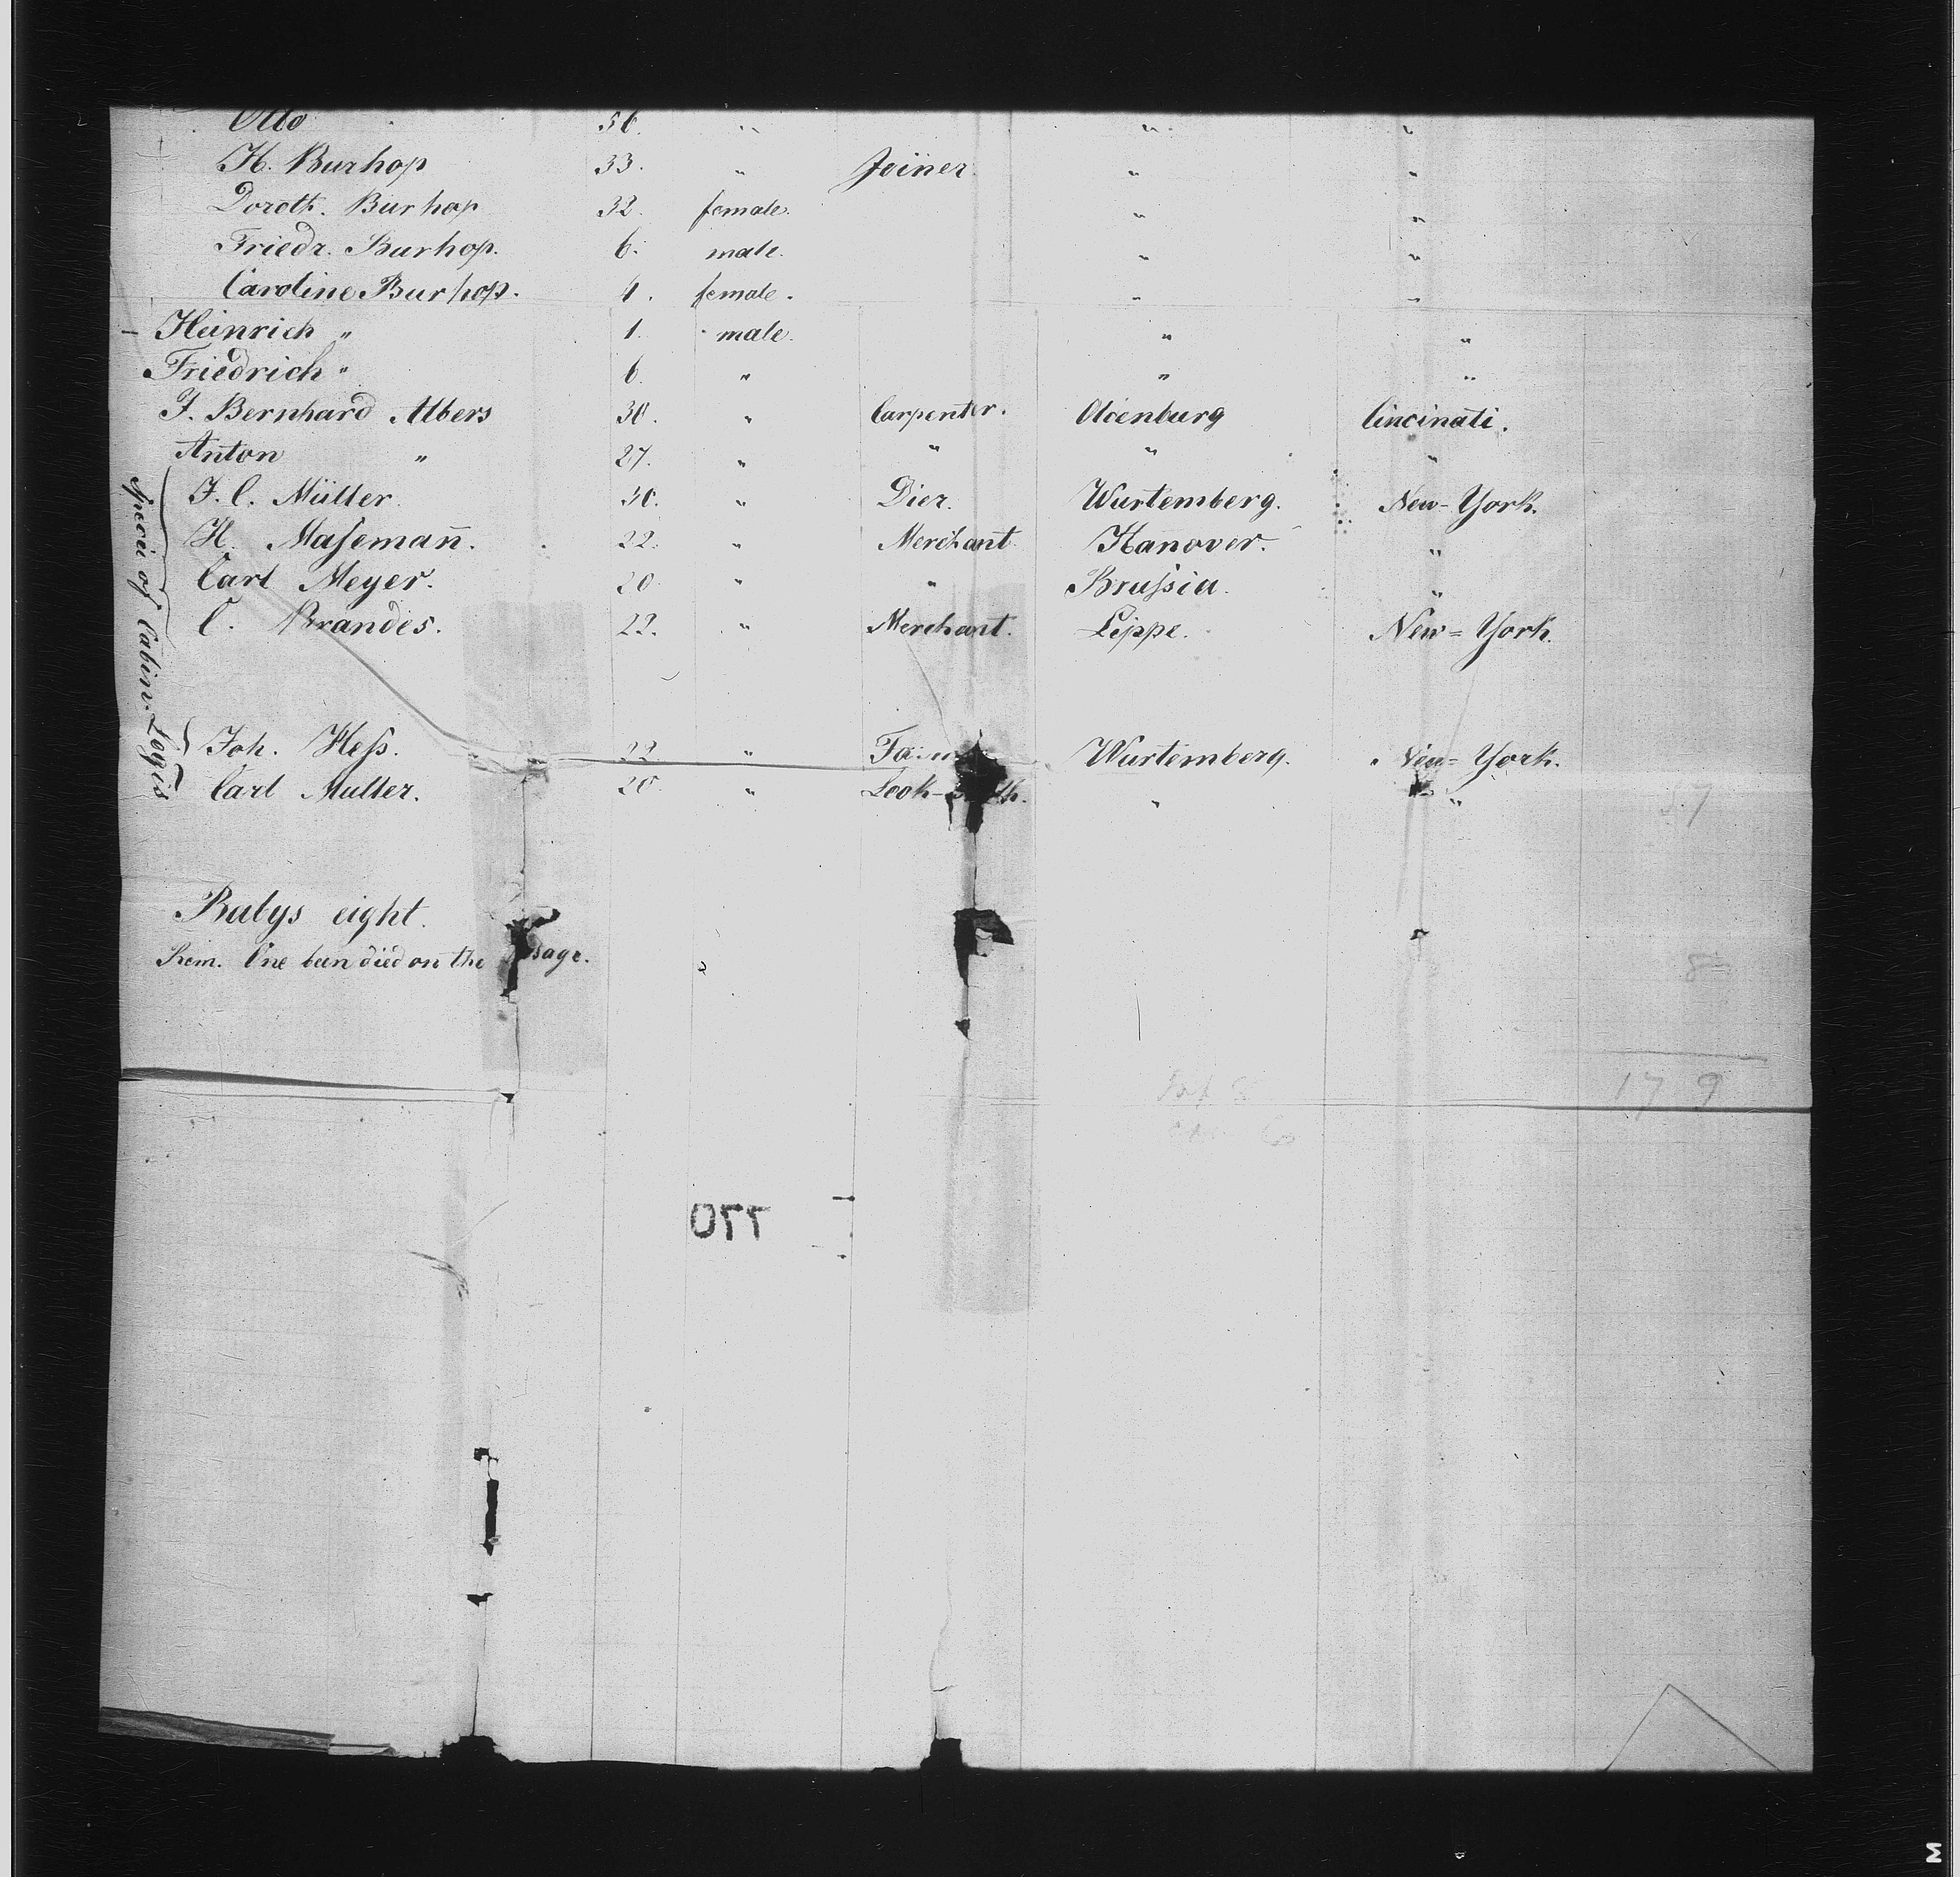 Otto 56. " " "
H. Burhop 33. " Joiner " "
Doroth. Burhop 32. female. " "
Friedr. Burhop. 6. male. " "
Caroline Burhop. 4. female. " "
Heinrich " 1. male. " "
Friedrich " 6. " " "
J. Bernhard Albers 30. " Carpenter. Oldenburg Cincinati.
Anton " 27. " " " "
J. C. Müller. 30. " Dier. Wurtemberg. New-York.
H. Maſemañ. 22. " Merchant Hanover. "
Carl Meyer. 20. " " Pruſsia. "
C. Brandes. 22. " Merchant. Lippe. New=York.
Speci of Cabin. Logis
Joh. Heſs. 22. " Wurtemberg. New=York.
Carl Muller. 20. " " "
57
Babys eight.
Rem. One been died on the
8
179
770
M